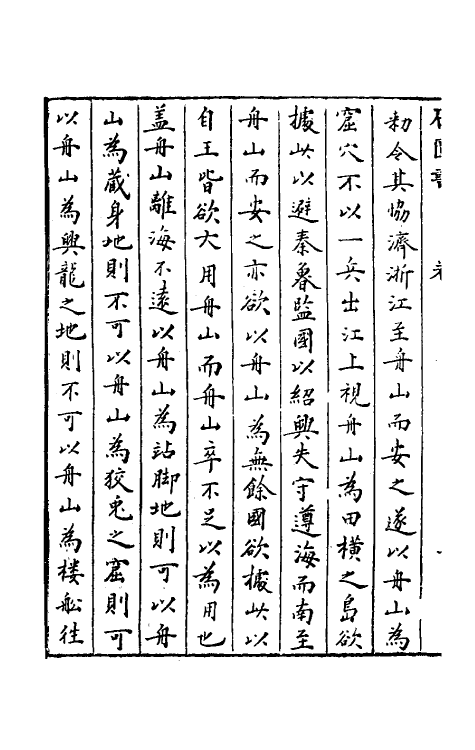 勑令其恊濟浙江至舟山而安之遂以舟山為
窟穴不以一兵出江上視舟山為田橫之島欲
據此以避秦魯監國以紹興失守遵海而南至
舟山而安之亦欲以舟山為無餘國欲據此以
自王皆欲大用舟山而舟山卒不足以為用也
盖舟山離海不遠以舟山為站脚地則可以舟
山為蔵身地則不可以舟山為狡兎之窟則可
以舟山為興龍之地則不可以舟山為楼舩往